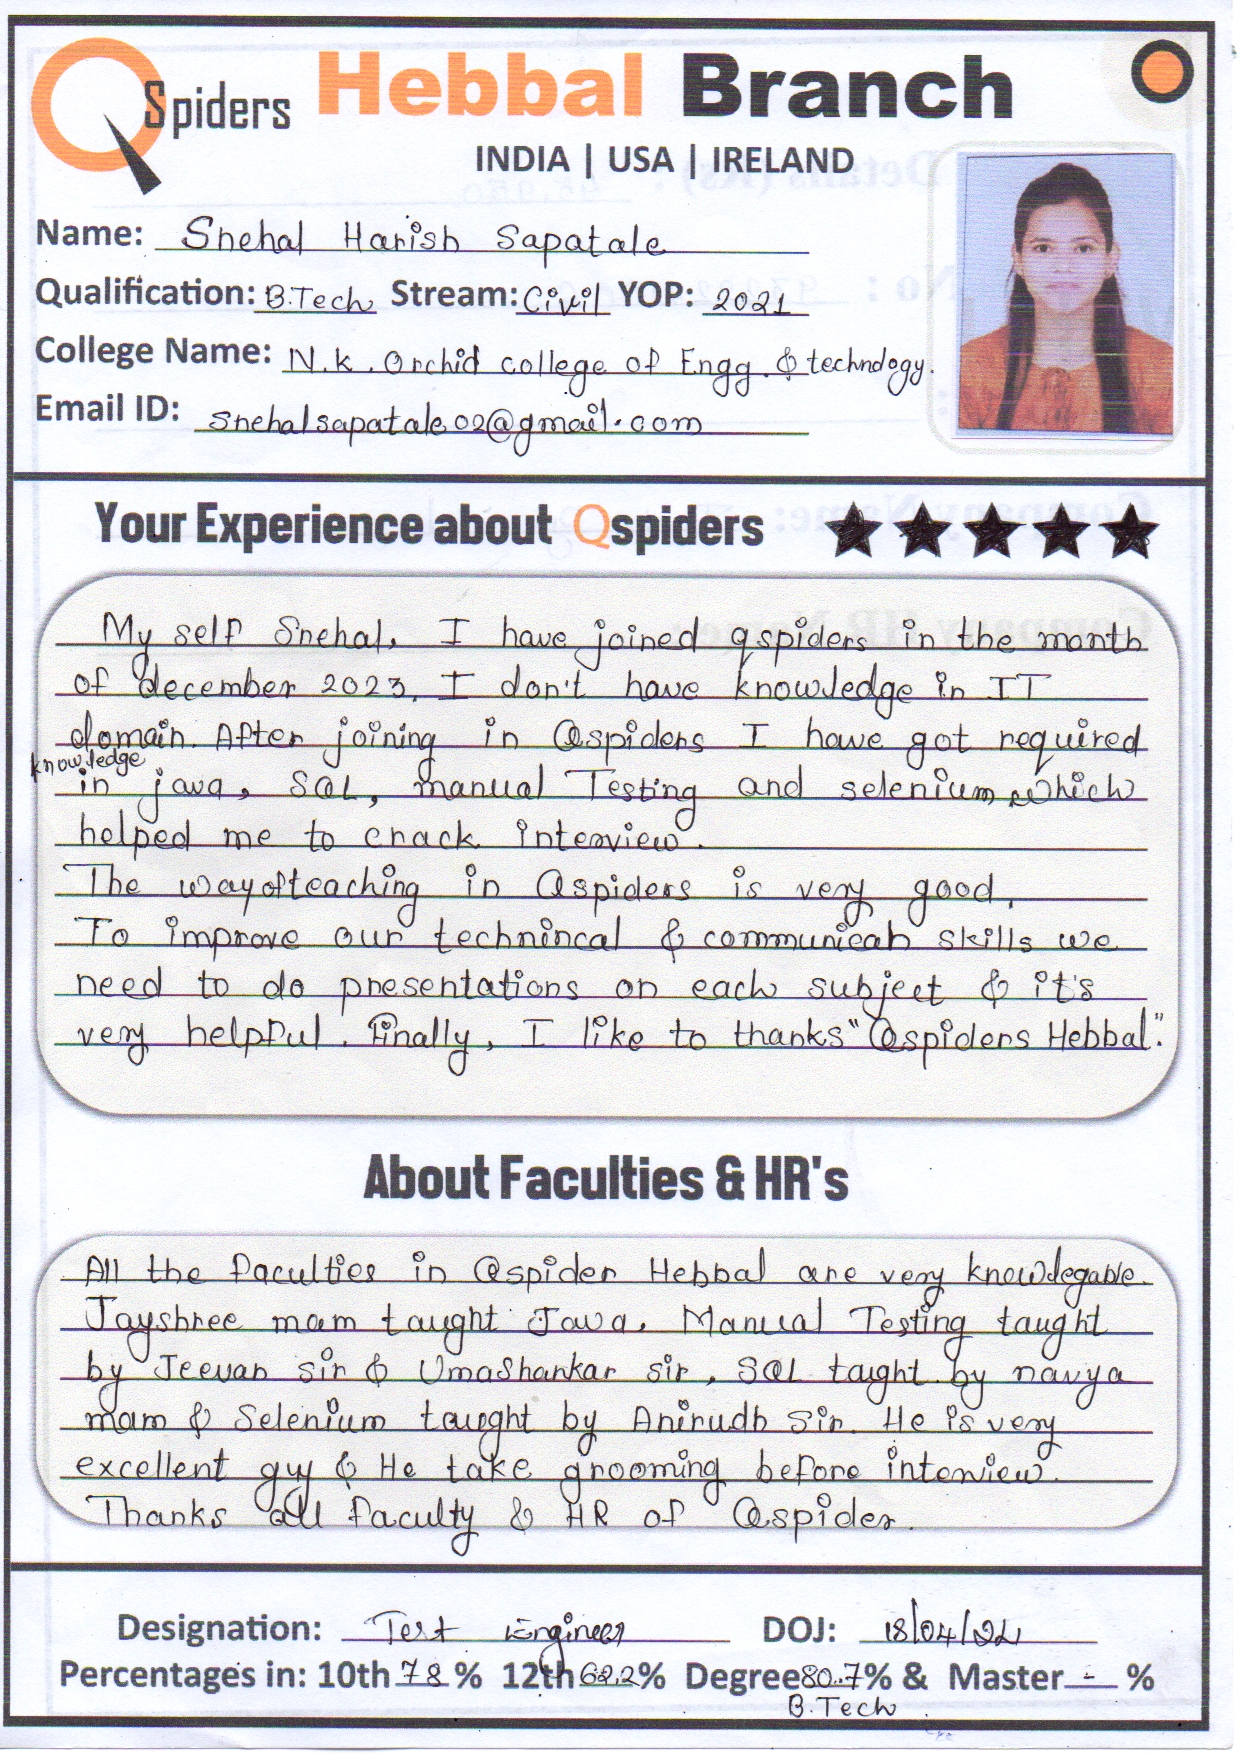 QSpiders Hebbal Branch
INDIA | USA | IRELAND
Name: Snehal Harish Sapatale
Qualification: B.Tech Stream: Civil YOP: 2021
College Name: N.k. Orchid college of Engg. & technology.
Email ID: snehalsapatale02@gmail.com
Your Experience about Qspiders
My self Snehal, I have joined qspiders in the month
of december 2023. I don't have knowledge in IT
domain. After joining in Qspiders I have got required
knowledge
in java, SQL, manual Testing and selenium which
helped me to crack interview.
The way of teaching in Qspiders is very good.
To improve our technincal & communicatn skills we
need to do presentations on each subject & it's
very helpful. Finally, I like to thanks "Qspiders Hebbal".
About Faculties & HR's
All the faculties in Qspider Hebbal are very knowldegable.
Jayshree mam taught Java, Manual Testing taught
by Jeevan sir & Umashankar sir, SQL taught by navya
mam & Selenium taught by Anirudh sir. He is very
excellent guy & He take grooming before interview.
Thanks all faculty & HR of Qspider.
Designation: Test Engineer DOJ: 18/04/24
Percentages in: 10th 78 % 12th 62.2% Degree 80.7% & Master - %
B.Tech